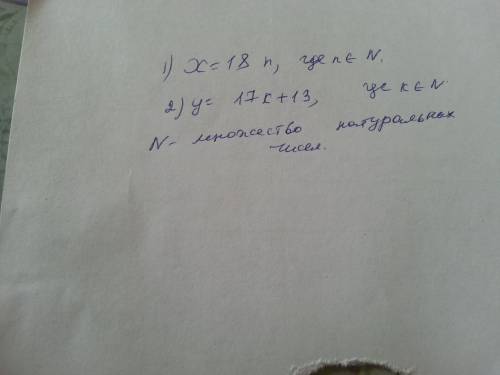 1) x = 18 n, где n ∈ N.
2) y = 17к + 13, где к ∈ N.
N - множество натуральных
чисел.